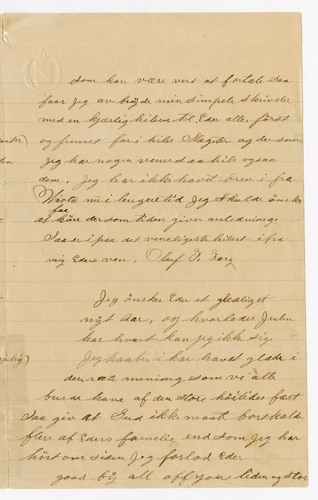 som kan være vert at fortæle saa
faar Jeg av brÿde min simpele skrivelse
med en kjærlig hilsen til Eder alle, først
og fremst for i hile Slægter og der som
Jeg har nogen venner da hils ogsaa
dem. Jeg har ikke havet brev i fra
i lengere tid Jeg skulde ønske
faa
at høre dersom tiden giver anledning
Saa er i paa det veneligste hilset i fra
mig Eders ven. Olaf
Jeg ønsker Eder et gledligt
nÿt Aar, og hvorledes Julen
har hvart kan pÿ ikke sige
Jeg haaber i har havet glæde i
den rete mening som vi alle
burde have af den store høitides fæst
Saa giv at Gud ikke maate bortkald
flere af Eders familie end som Jeg har
hørt om siden Jeg forlod Eder
good bÿ all off you liden og stor